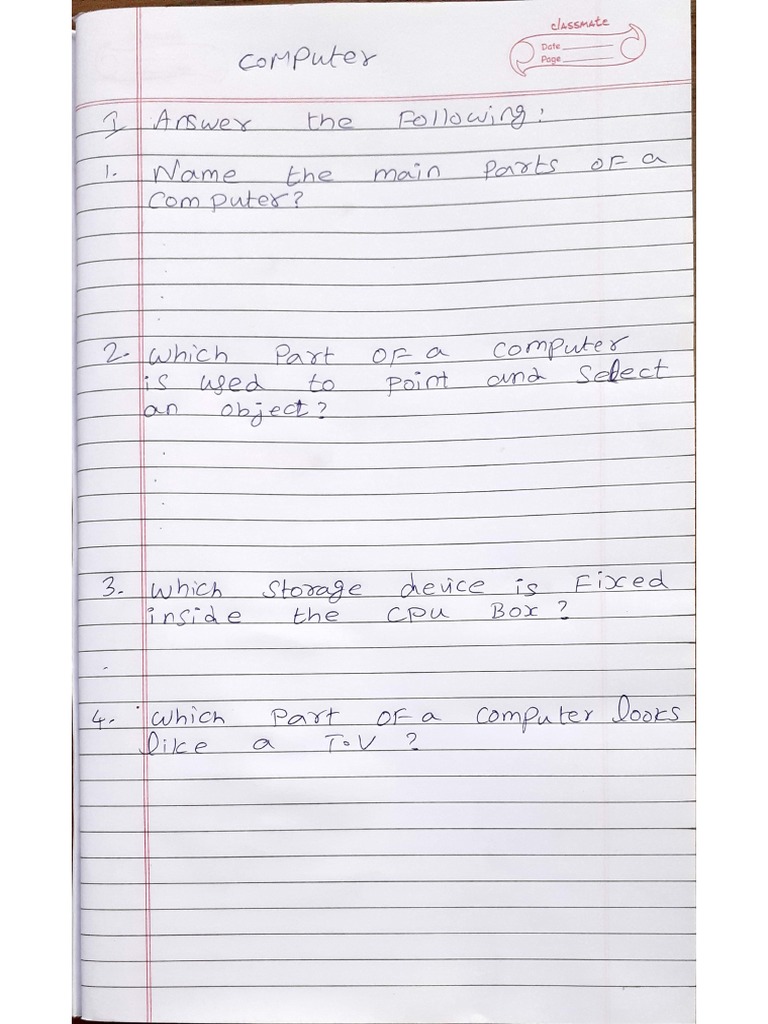 classmate
Date
Page
Computer
I Answer the Following:
1. Name the main parts of a
Computer?
2. Which Part of a computer
is used to point and Select
an object?
3. Which Storage device is Fixed
inside the CPU Box?
4. Which Part of a Computer looks
like a T.V ?